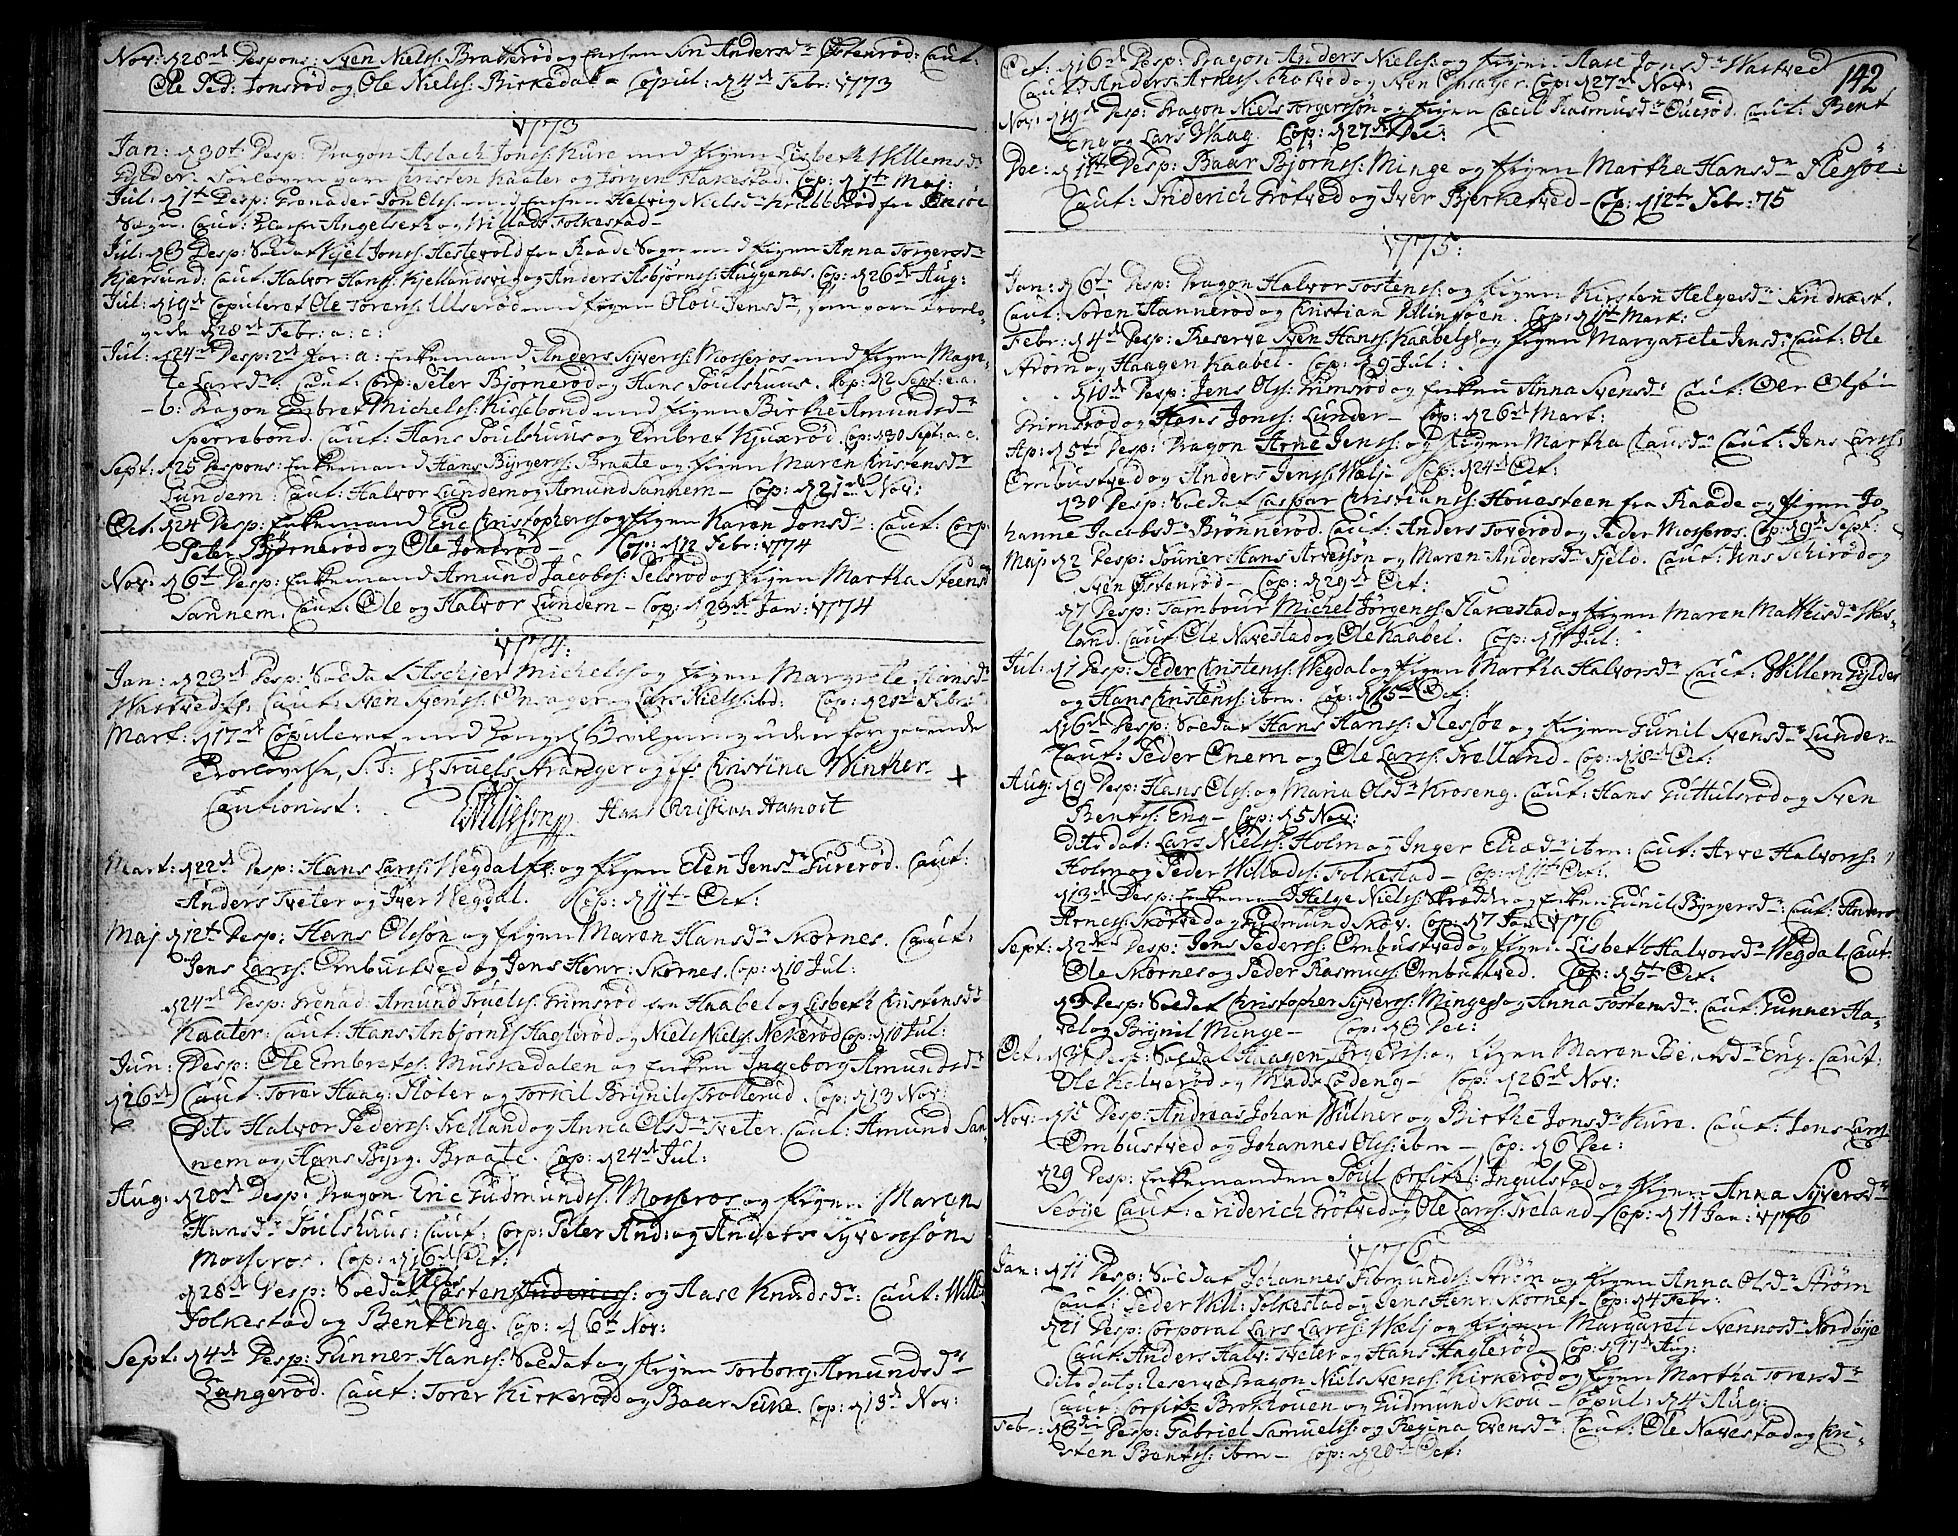 Nov: d 28d Despons: Sven Niels: Bratterød og Enchen Siri Andersd: Østenrød: Caut:
Ole Ped: Jonsrød og Ole Niels: Birkedal – Copul: d 4d Febr: 1773
1773
Jan: d 30t Desp: Dragon Aslach Jons: Kure med Pigen Lisbeth Willemsd:
Gylder. Forlovere vare Cristen Kaater og Jørgen Flakestad. Cop: d 1t Maj:
Jul: d 1t Desp: Granader Jon Ols: med Enchen Helvig Nielsd: fra
Sogn. Caut: Angelseth og Willads Folkestad –
Jul: d 8 Desp: Soldat Kjel Jons: Hestevold fra Raade Sogn med Pigen Anna Torgersd:
Kjærsund: Caut: Halvor Hans: Kjellandsvig og Anders Asbjørns: Huggenes. Cop: d 26d Aug:
Jul: d 19d Copuleret Ole Torens: Ulserød med Pigen Olou Jensd:, som vare Trorlo-
vede d 28d Febr: a: c:
Jul: d 24d Desp: 2d Par: a: Enkemand Anders Syvers: Mosseros med Pigen Magre-
te Larsd: Caut: Corp: Peter Bjørnerød og Hans Poulshuus. Cop: d 2 Sept: e: a:
– b: Dragon Embret Michels: Kissebond med Pigen Birthe Amundsd:
Sperrebond. Caut: Hans Poulshuus og Embret Kjuxrød. Cop: d 30 Sept: a. c.
Sept: d 25 Despons: Enkemand Hans Byrgers: Braate og Pigen Maren Cristensd:
Lundem: Caut: Halvor Lundem og Amund Sannem – Cop: d 21d Nov:
Oct: d 24 Desp: Enkemand Eric Christophers: og Pigen Karen Jonsd: Caut: Corp:
Peter Bjørnerød og Ole Jonsrød – Cop: d 12 Febr: 1774
Nov: d 6t Desp: Enkemand Amund Jacobs: Pelsrød og Pigen Martha Steensd:
Sannem. Caut: Ole og Halvor Lundem – Cop: d 23d Jan: 1774
1774.
Jan: d 23d Desp: Soldat Aschjer Michels: og Pigen Margrete
Wastved Caut: Sven Svens: Onsager og Lars Niels: ibd. Cop: d Febr:
Mart: d 17d Copuleret med Konge: Bevilgning uden foregaaende
Trorlovelse, S: T: Hr Truels Stranger og Jfr Cristina Winther –
Cautionist: Hans Christian Hamoet
Mart: d 22d Desp: Hans Lars: Wegdal og Pigen Elen Jensd: Gurerød. Caut:
Anders Tveter og Iver Wegdal. Cop: d 11t Oct:
Maj d 12t Desp: Hans Olssøn og Pigen Maren Hansd: Skornes. Caut:
Jens Lars: Ombustved og Jens Henr: Skornes. Cop: d 10 Jul:
d 24d Desp: Grenad: Amund Truels: Grimsrød fra Haabel og Lisbeth Cristensd:
Kaater: Caut: Hans Anbjørns: Haglerød og Niels Niels: Nekerød Cop: d 10 Jul:
Jun: Desp: Ole Embrets: Muskedalen og Enken Ingeborg Amundsd:
d 26d Caut: Torer Haag: Fløter og Torkil Brynils: Trollerud. Cop: d 13 Nov:
Dito Halvor Peders: Trelland og Anna Olsd: Tveter. Caut: Amund San-
nem og Hans Byrg: Braate. Cop: d 24d Jul:
Aug: d 20d Desp: Dragon Eric Gudmunds: Mosseros og Pigen Maren
Hansd: Poulshuus: Caut: Corp: Peter And: og Anders Syverssøn
Mosseros. Cop: d 16d Oct:
d 28d Desp: Soldat Tosten og Aase Knudsd: Caut: Willads
Folkestad og Bent Eng. Cop: d 6t Nov:
Sept: d 4d Desp: Gunner Hans: Soldat og Pigen Torborg: Amundsd:
Langerød. Caut: Torer Kirkerød og Baar Sure. Cop: d 13d Nov:
142
Oct: d 16d Desp: Dragon Anders Niels: og Pigen Aase Jonsd: Wastved
Caut: Anders Arnes: Skotved og Sven Onsager. Cop: d 27d Nov:
Nov: d 19d Desp: Dragon Niels Torgerssøn og Pigen Cæcil Rasmusd: Ouerød. Caut: Bent
Eng og Lars Waag. Cop: d 27d Dec:
Dec: d 11t Desp: Baar Bjørns: Minge og Pigen Martha Hansd: Flesjøe:
Caut: Friderich Trøtved og Iver Bjerketved – Cop: d 12t Febr: 75
1775:
Jan: d 6t Desp: Dragon Halvor Tostens: og Pigen Kirsten Helgesd: Sindkast.
Caut: Soren Hannerød og Cristian Wilingsøen. Cop: d 11t Mart:
Febr: d 4d Desp: Reserve Sven Hans: Kaabel og Pigen Margarete Jensd: Caut: Ole
Strøm og Haagen Kaabel. Cop: d 9 Jul:
d 10d Desp: Jens Ols: Grimsrød og Enken Anna Svensd: Caut: Oler Olssøn
Grimsrød og Hans Jons: Lunder – Cop: d 26d Mart:
Ap: d 5t Desp: Dragon Arne Jens: og Pigen Martha Clausd: Caut: Jens Lars:
Ombustved og Anders Jens: Wælj – Cop: d 24d Oct:
d 30 Desp: Soldat Caspar Cristians: Houesteen fra Raade og Pigen Jo-
hanne Jacobsd: Brønnerød. Caut: Anders Toverød og Peder Mosseros. Cop: d 9d Sept:
Maj d 2 Desp: Fourier: Hans Arvessøn og Maren Andersd: Fjeld. Caut: Jens Schirød og
Sven Østenrød – Cop: d 29d Oct:
d 7 Desp: Tambour Michel Jørgens: Flakestad og Pigen Maren Mathisd: Hes-
land. Caut: Ole Navestad og Ole Kaabel. Cop: d 11 Jul:
Jul: d 1 Desp: Peder Cristens: Wegdal og Pigen Martha Halvorsd: Caut: Willem Gylder
og Hans Cristens: ibm. Cop: d 15d Oct:
d 16d Desp: Soldat Hans Hans: Flessjøe og Pigen Gunil Svensd: Lunder –
Caut: Peder Enem og Ole Lars: Trelland – Cop: d 18d Oct:
Aug: d 9 Desp: Hans Ols: og Maria Olsd: Kroseng. Caut: Hans Guttulsrød og Sven
Bents: Eng – Cop: d 5 Nov:
dito dat: Lars Niels: Holm og Inger Eliæd: ibm: Caut: Arve Halvors:
Holm og Peder Willads: Folkestad – Cop: d 11t Oct:
d 13d Desp: Enkemand Helge Niels: Skrædder og Enken Gunil Byrgersd: Caut: Anders
Arnes: Skotved og Gudmund Skov. Cop: d 7 Jan: 1776
Sept: d 2den Desp: Jens Peders: Ombustved og Pigen Lisbeth Halvorsd: Wegdal Caut:
Ole Skornes og Peder Rasmus: Ombustved. Cop: d 5t Oct:
d 3 Desp: Soldat Christopher Syvers: Minge og Anna Tostensd: Caut: Gunner Ha-
vel og Brynil Minge – Cop: d 8 Dec:
Oct: d Desp: Soldat Haagen Torgers: og Pigen Maren Bentsd: Eng. Caut:
Ole Kalverød og Mads Lødeng – Cop: d 26d Nov:
Nov: d Desp: Andreas Johan Wulner og Birthe Jonsd: Kure. Caut: Jens Lars:
Ombustved og Johannes Ols: ibm – Cop: d 6 Dec:
d 29 Desp: Enkemanden Poul Corfitz: Ingulstad og Pigen Anna Syversd:
Seøÿe Caut: Friderich Trøtved og Ole Lars: Treland – Cop: d 11 Jan: 1776
1776.
Jan: d 11 Desp: Soldat Johannes Sigmunds: Strøm og Pigen Anna Olsd: Strøm
Caut: Peder Will: Folkestad og Jens Henr: Skornes – Cop: d 4 Febr:
d 21 Desp: Corporal Lars Lars: Wælj og Pigen Margarete Svennosd: Nordbÿe
Caut: Anders Halv: Tveter og Hans Haglerød – Cop: d 17d Aug:
dito dato: Reserve Dragon Niels Svens: Kirkerød og Pigen Martha Torersd:
Caut: Corfitz Brokhouen og Gudmund Skou – Copul: d 4 Aug:
Febr: d 8de Desp: Gabriel Samuels: og Regina Evensd: Caut: Ole Navestad og Cri-
sten Bents: ibm – Cop: d 20d Oct: